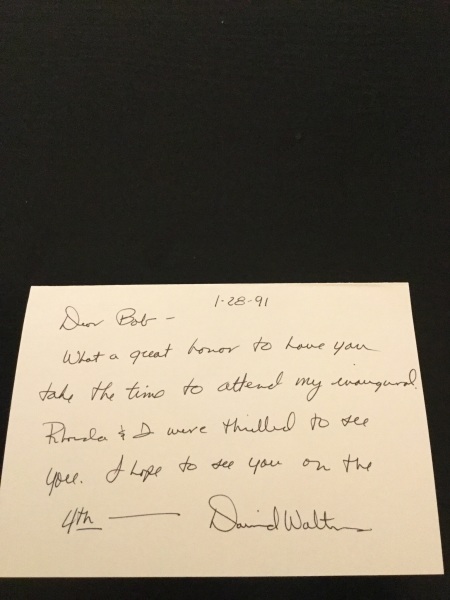 1-28-91
Dear Bob -
What a great honor to have you
take the time to attend my inaugural.
Rhonda & I were thrilled to see
you. I hope to see you on the
4th — David Walters